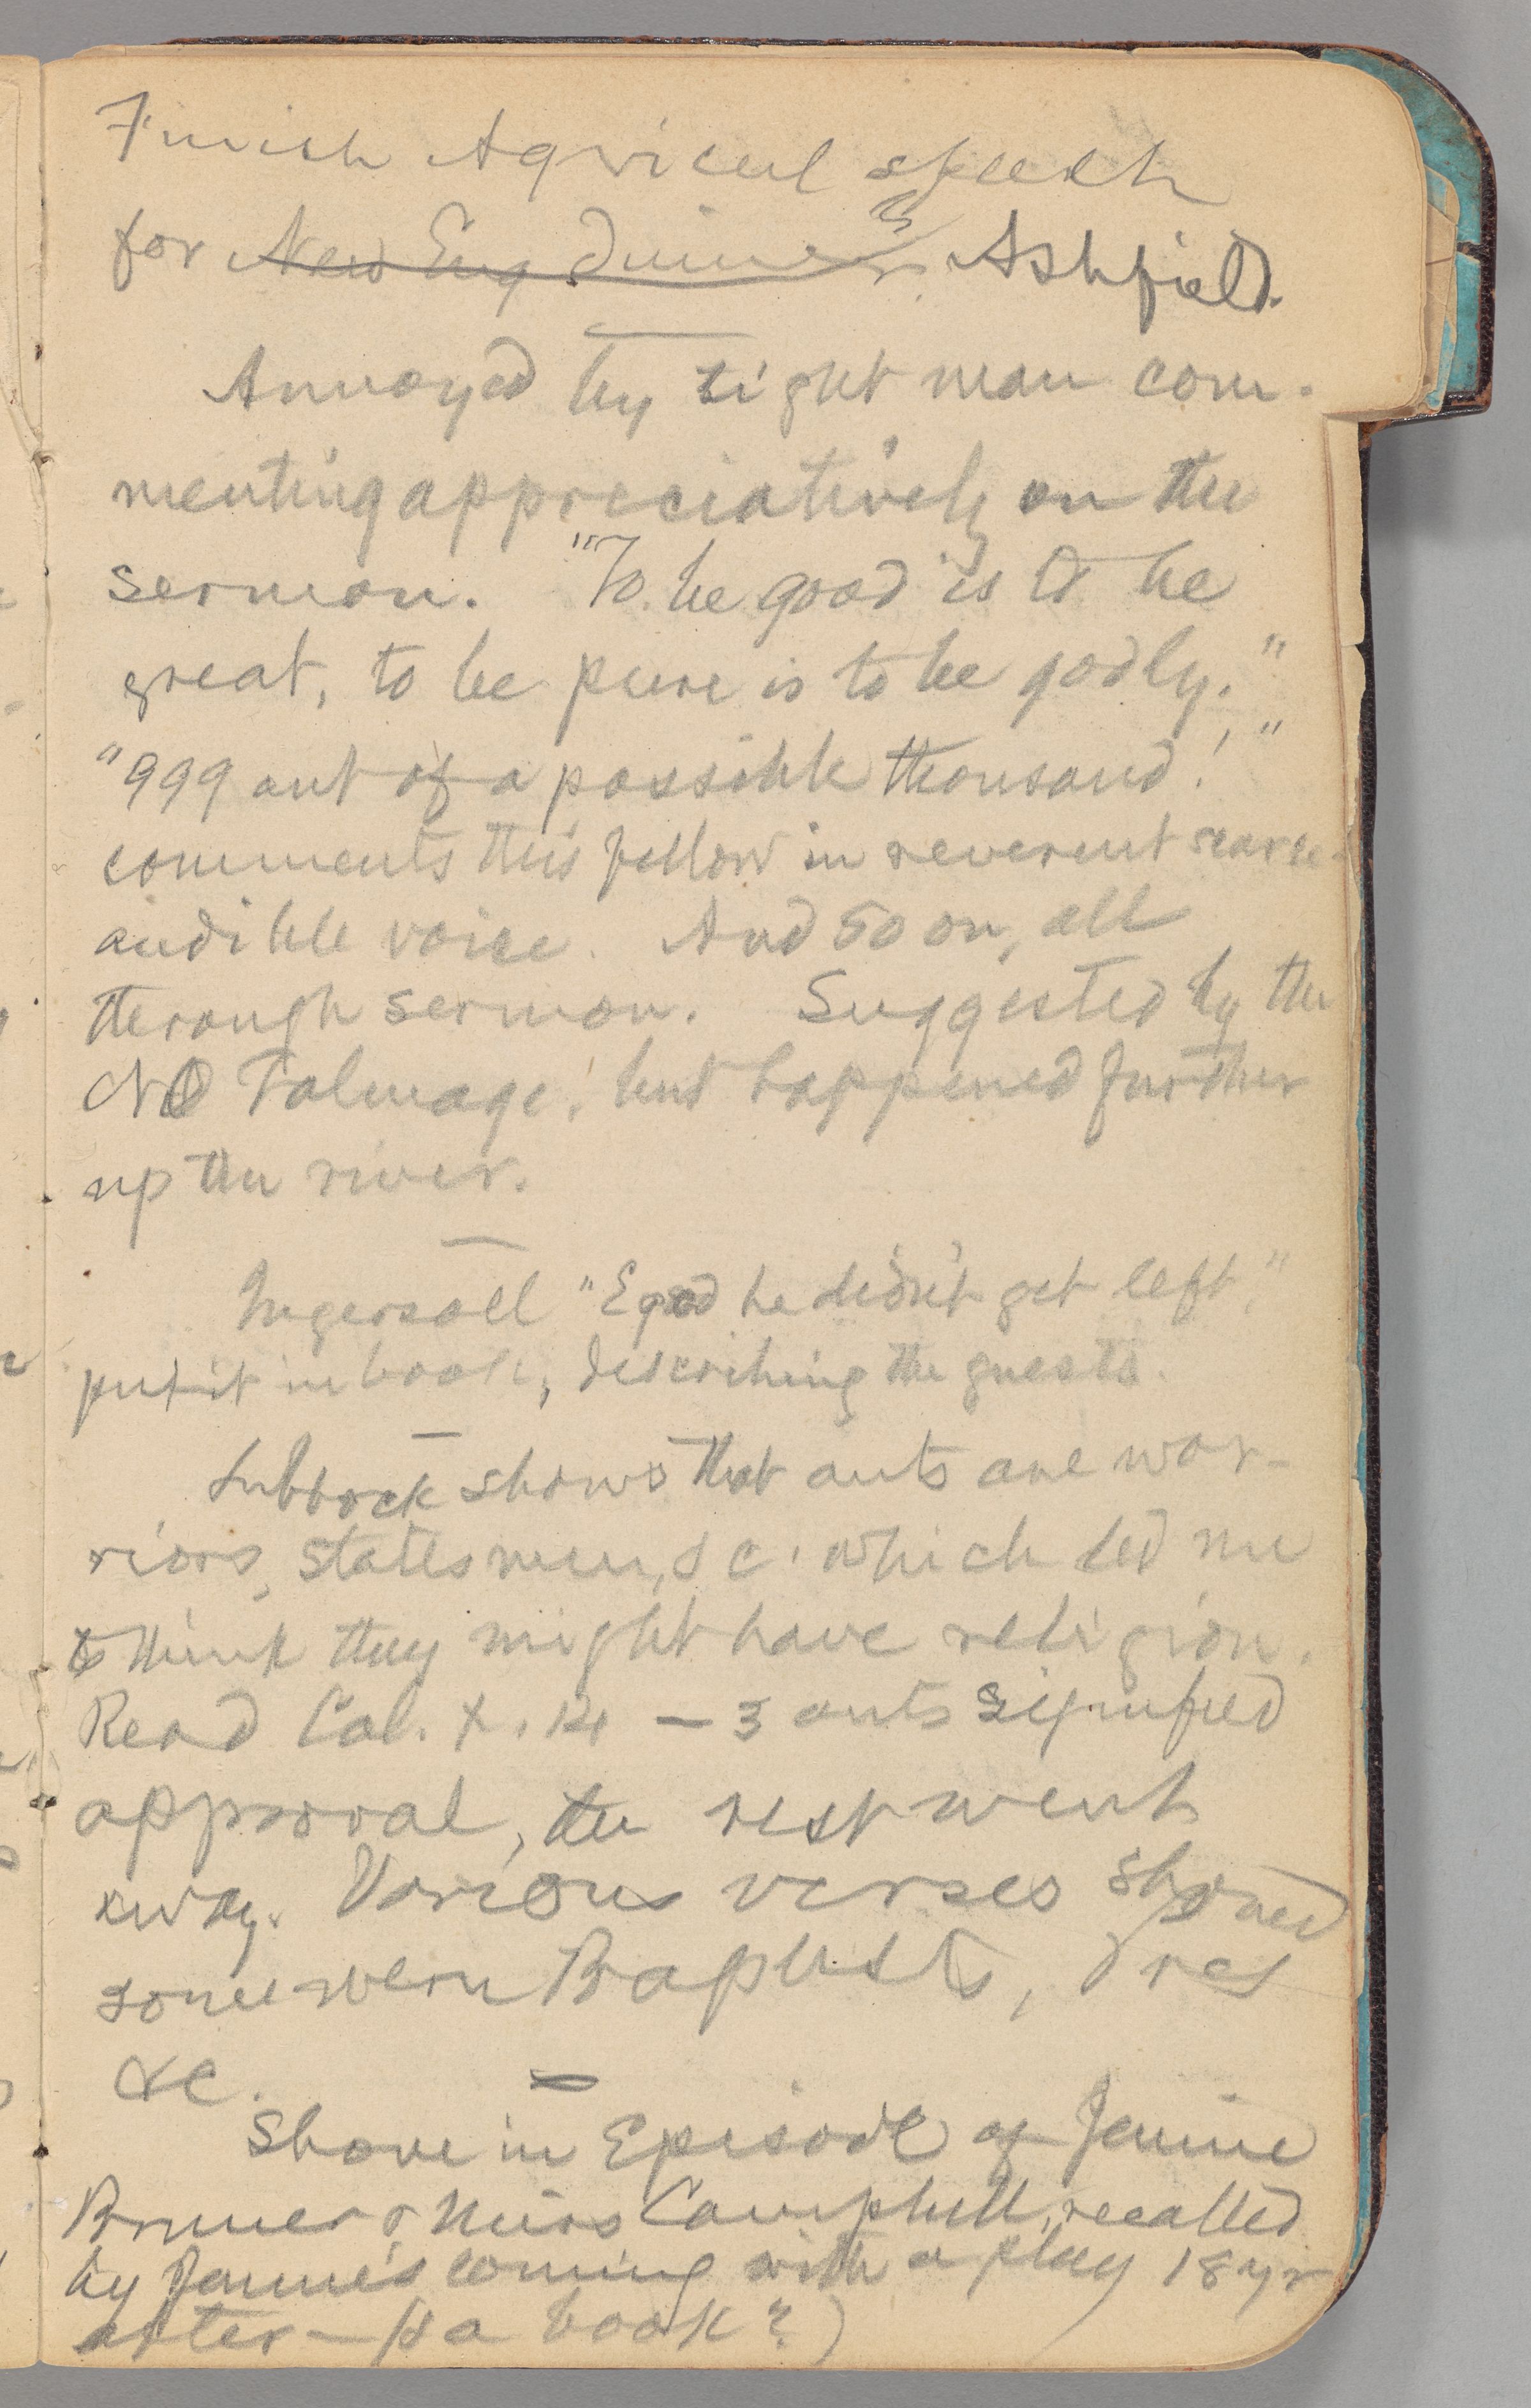 Finish Agricul speech
for New Eng dinner Ashfield.
Annoyed by sight man com-
menting appreciatively on the
sermon. "To be good is to be
great, to be pure is to be godly."
"999 out of a possible thousand!"
comments this fellow in reverent scarce-
audible voice. And so on, all
through sermon. Suggested by the
NO Talmage, but happened further
up the river.
Ingersoll "Egod he didn't get left,"
put it in book, describing the guests.
Lubbock shows that ants are war-
riors, statesmen, &c. which led me
to think they might have religion.
Read Col. x. 14 — 3 ants signified
approval, the rest went
away. Various verses showed
some were Baptists, Pres
&c.
Shove in Episode of Jennie
& Miss Campbell, recalled
by Jennie's coming with a play 18 yr
after — (Is a book?)